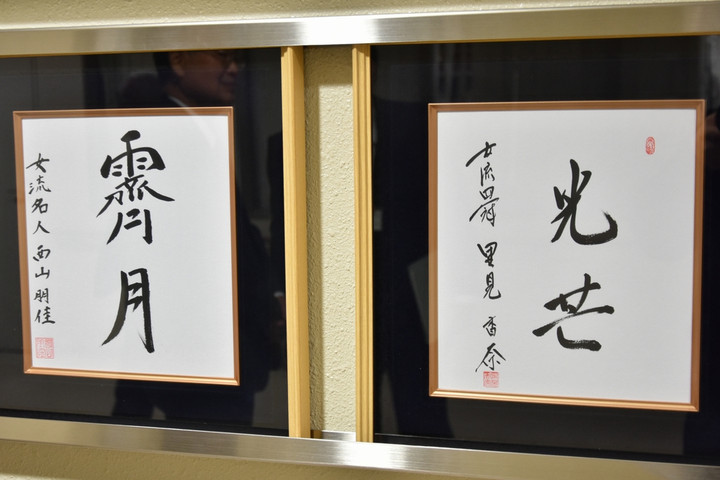 霽月
女流名人 西山朋佳
光芒
女流四冠 里見香奈